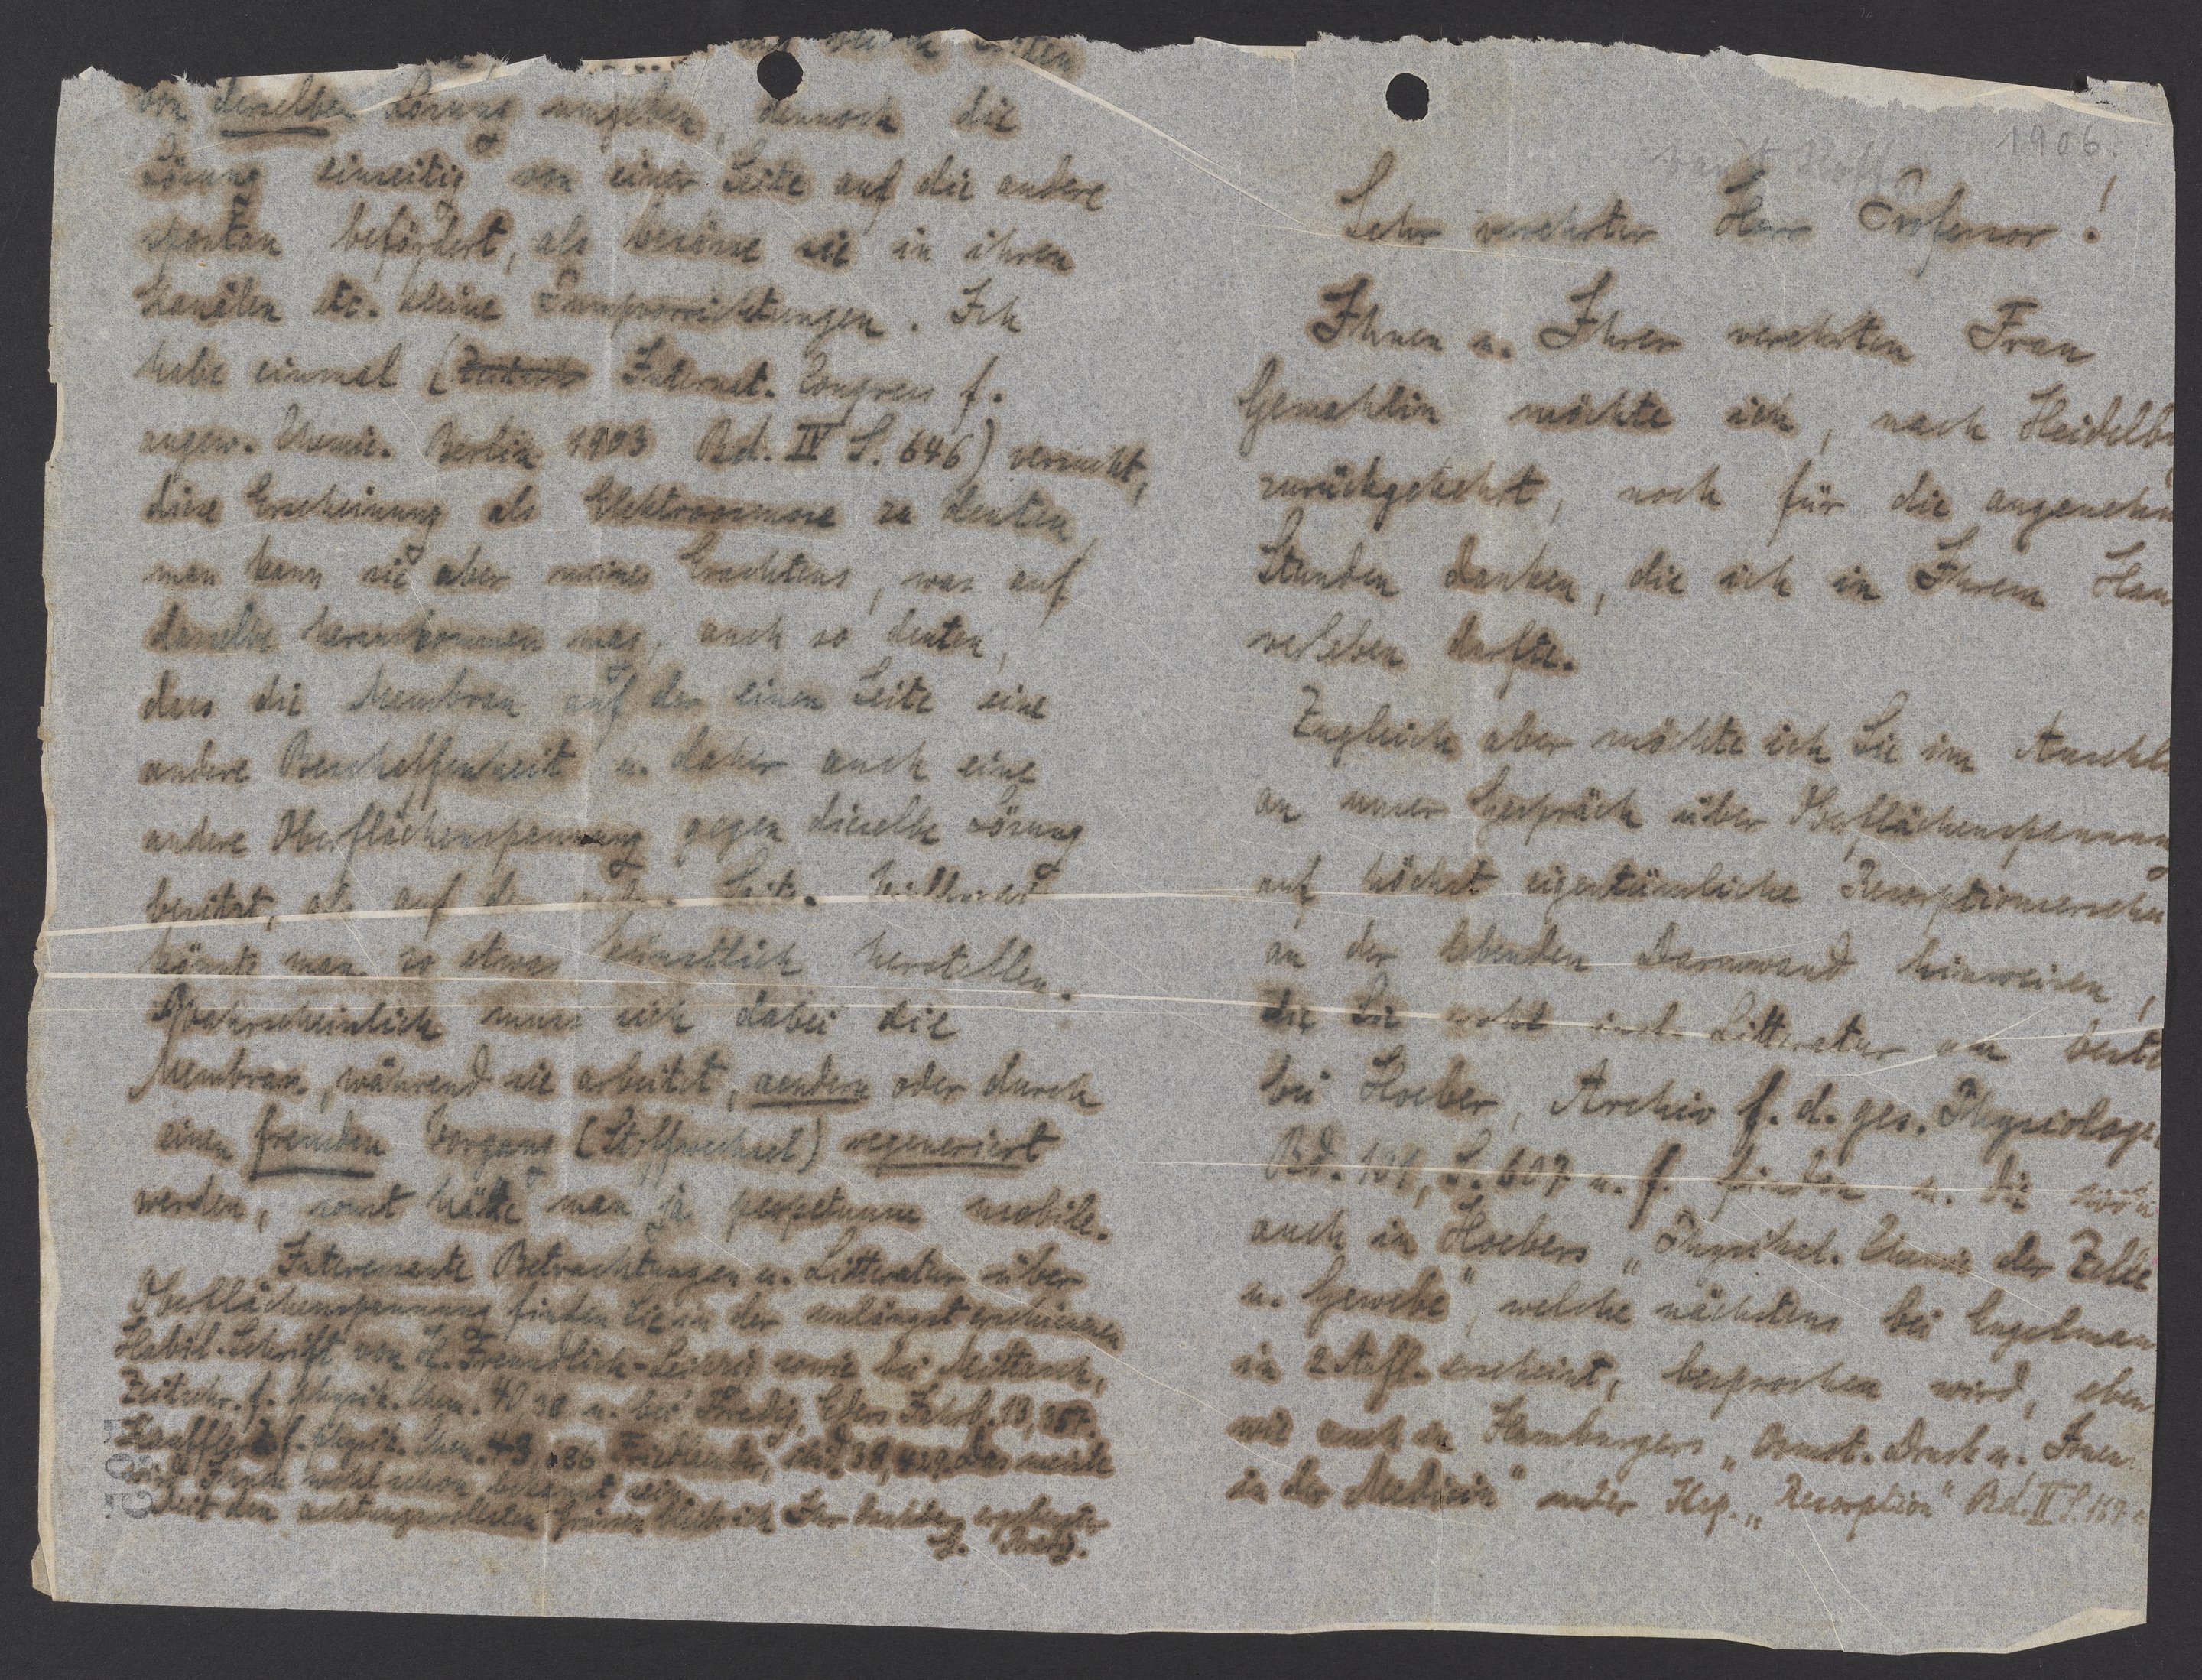 van't Hoff
1906.
Sehr verehrter Herr Professor!
Ihnen u. Ihrer verehrten Frau
Gemahlin möchte ich, nach Heidelb
zurückgekehrt, noch für die angenehm
Stunden danken, die ich in Ihrem Hau
verleben durfte.
Zugleich aber möchte ich Sie im Anschl
an unser Gespräch über Oberflächenspannung
auf höchst eigentümliche Resorptionserschei
an der lebenden Darmwand hinweisen,
die Sie wohl incl. Litteratur am beste
bei Hoeber, Archiv f. d. ges. Physiologi
Bd. 101, S. 607 u. f. finden u. die
auch in Hoebers „Physikal. Chemie der Zelle
u. Gewebe", welche nächstens bei Engelman
in 2 Aufl. erscheint, besprochen wird, eben
wie auch in Hamburgers „Osmot. Druck u. Ionen
in der Medicin" unter Kap. „Resorption" Bd. II S. 167
von derselben Lösung umgeben, dennoch die
Lösung einseitig von einer Seite auf die andere
spontan befördert, als besässe sie in ihren
Kanälen etc. kleine Pumpvorrichtungen. Ich
habe einmal ( Internat. Congress f.
angew. Chemie. Berlin 1903 Bd. IV S. 646) versucht,
diese Erscheinung als Elektroosmose zu deuten
man kann sie aber meines Erachtens, was auf
dasselbe herauskommen mag, auch so deuten,
dass die Membran auf der einen Seite eine
andere Beschaffenheit u. daher auch eine
andere Oberflächenspannung gegen dieselbe Lösung
besitzt, als auf der andern Seite. Vielleicht
könnte man so etwas künstlich herstellen.
Wahrscheinlich muss sich dabei die
Membran, während sie arbeitet, aendern oder durch
einen fremden Vorgang (Stoffwechsel) regeneriert
werden, sonst hätte man ja perpetuum mobile.
Interessante Betrachtungen u. Litteratur über
Oberflächenspannung finden Sie in der unlängst erschienenen
Habil. Schrift von H. Freundlich-Leipzig sowie bei Mittasch,
Zeitschr. f. physik. Chem. 40 38 u. bei Bredig, Eders Jahrb. 13, 357.
f. physik. Chem. 43 Friedländer, ibid. 38, 429. Das meiste
wird Ihnen wohl schon bekannt sein.
Mit den achtungsvollsten Grüssen bleibe ich Ihr dankbar ergebenster
G. Bredig.